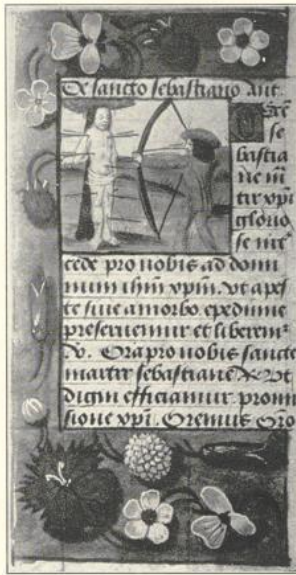 De sancto sebastiano ant.
O sctē
se
bastia
ne m̄
tir xp̄i
glorio
se int̄
cede pro nobis ad domi
num ih̄m xp̄m. Vt a pes
te siue a morbo epydimie
preseruemur et liberem²
V. Ora pro nobis sancte
martir sebastiane R. Vt
digni efficiamur promi
sione xp̄i. Oremus Oro